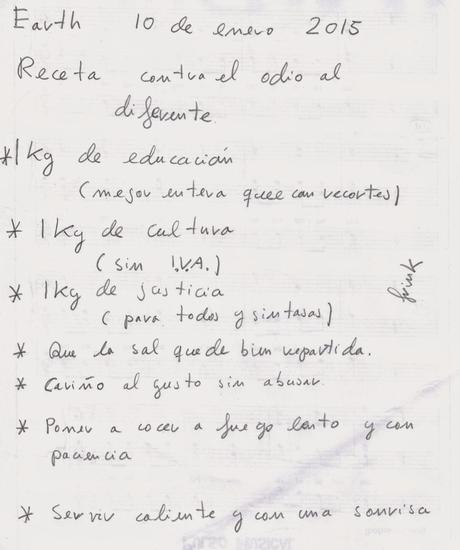 Earth 10 de enero 2015
Receta contra el odio al
diferente
*1kg de educación
(mejor entera quee con recortes)
* 1kg de cultura
(sin I.V.A.)
* 1kg de justicia
(para todos y sin tasas)
frink
* Que la sal quede bien repartida.
* Cariño al gusto sin abusar
* Poner a cocer a fuego lento y con
paciencia
* Servir caliente y con una sonrisa
PULSO MUSICAL